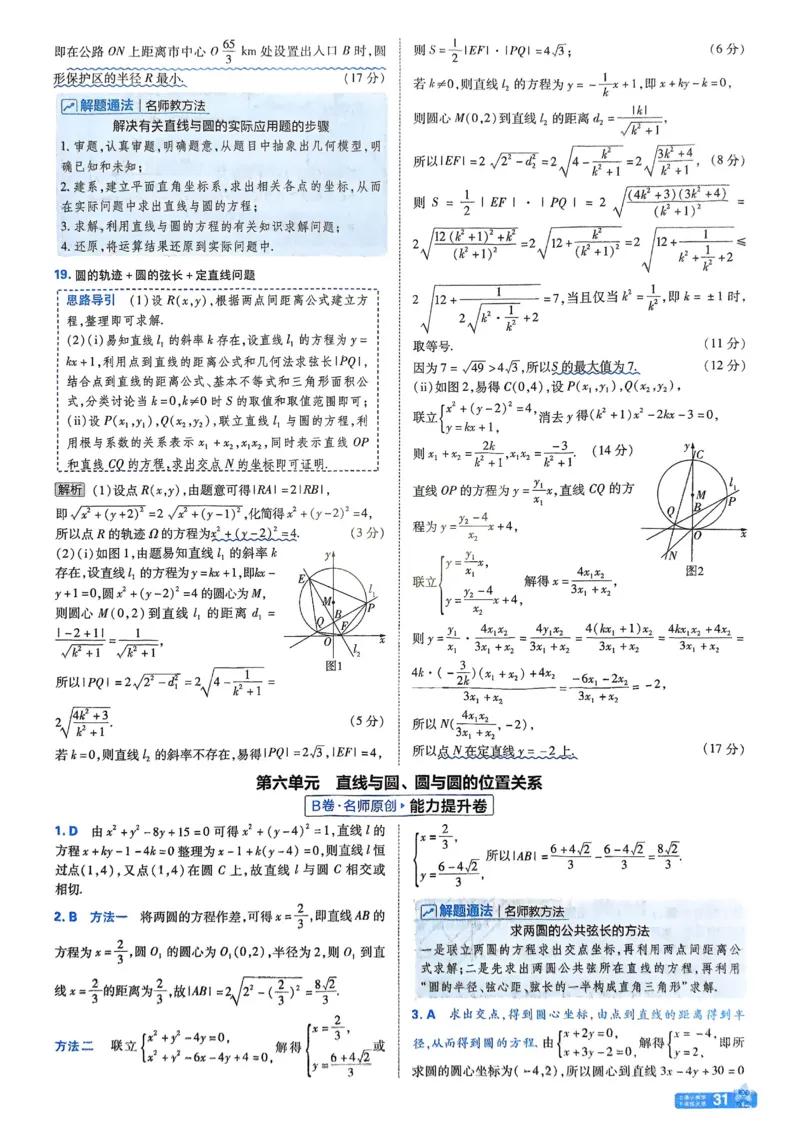 即在公路 ON 上距离市中心 O 65/3 km 处设置出入口 B 时,圆
形保护区的半径 R 最小. (17 分)
解题通法 | 名师教方法
解决有关直线与圆的实际应用题的步骤
1. 审题,认真审题,明确题意,从题目中抽象出几何模型,明
确已知和未知;
2. 建系,建立平面直角坐标系,求出相关各点的坐标,从而
在实际问题中求出直线与圆的方程;
3. 求解,利用直线与圆的方程的有关知识求解问题;
4. 还原,将运算结果还原到实际问题中.
19. 圆的轨迹 + 圆的弦长 + 定直线问题
思路导引 (1)设 R(x,y),根据两点间距离公式建立方
程,整理即可求解.
(2)(i)易知直线 l₁ 的斜率 k 存在,设直线 l₁ 的方程为 y=
kx+1,利用点到直线的距离公式和几何法求弦长|PQ|,
结合点到直线的距离公式、基本不等式和三角形面积公
式,分类讨论当 k=0,k≠0 时 S 的取值和取值范围即可;
(ii)设 P(x₁,y₁),Q(x₂,y₂),联立直线 l₁ 与圆的方程,利
用根与系数的关系表示 x₁+x₂,x₁x₂,同时表示直线 OP
和直线 CQ 的方程,求出交点 N 的坐标即可证明.
解析 (1)设点 R(x,y),由题意可得|RA|=2|RB|,
即√(x²+(y+2)²)=2√(x²+(y-1)²),化简得 x²+(y-2)²=4,
所以点 R 的轨迹 Ω 的方程为 x²+(y-2)²=4. (3 分)
(2)(i)如图 1,由题易知直线 l₁ 的斜率 k
存在,设直线 l₁ 的方程为 y=kx+1,即 kx-
y+1=0,圆 x²+(y-2)²=4 的圆心为 M,
则圆心 M(0,2)到直线 l₁ 的距离 d₁ =
|-2+1|/√(k²+1) = 1/√(k²+1),
图1
所以|PQ|=2√(2²-d₁²)=2√(4-1/(k²+1)) =
2√((4k²+3)/(k²+1)). (5 分)
若 k=0,则直线 l₂ 的斜率不存在,易得|PQ|=2√3,|EF|=4,
则 S=1/2|EF|·|PQ|=4√3; (6 分)
若 k≠0,则直线 l₂ 的方程为 y=-1/k x+1,即 x+ky-k=0,
则圆心 M(0,2)到直线 l₂ 的距离 d₂=|k|/√(k²+1),
所以|EF|=2√(2²-d₂²)=2√(4-k²/(k²+1))=2√((3k²+4)/(k²+1)), (8 分)
则 S = 1/2 |EF|·|PQ| = 2√((4k²+3)(3k²+4)/(k²+1)²) =
2√((12(k²+1)²+k²)/(k²+1)²)=2√(12+k²/(k²+1)²)=2√(12+1/(k²+1/k²+2)) ≤
2√(12+1/(2√(k²·1/k²)+2))=7,当且仅当 k²=1/k²,即 k=±1 时,
取等号. (11 分)
因为 7=√49>4√3,所以 S 的最大值为 7. (12 分)
(ii)如图 2,易得 C(0,4),设 P(x₁,y₁),Q(x₂,y₂),
联立{x²+(y-2)²=4, y=kx+1, 消去 y 得(k²+1)x²-2kx-3=0,
则 x₁+x₂=2k/(k²+1),x₁x₂=-3/(k²+1). (14 分)
直线 OP 的方程为 y=y₁/x₁ x,直线 CQ 的方
程为 y=(y₂-4)/x₂ x+4,
图2
联立{y=y₁/x₁ x, y=(y₂-4)/x₂ x+4, 解得 x=4x₁x₂/(3x₁+x₂),
则 y=y₁/x₁·4x₁x₂/(3x₁+x₂)=4y₁x₂/(3x₁+x₂)=4(kx₁+1)x₂/(3x₁+x₂)=(4kx₁x₂+4x₂)/(3x₁+x₂)=
(4k·(-3/2k)(x₁+x₂)+4x₂)/(3x₁+x₂)=(-6x₁-2x₂)/(3x₁+x₂)=-2,
所以 N(4x₁x₂/(3x₁+x₂),-2),
所以点 N 在定直线 y=-2 上. (17 分)
第六单元 直线与圆、圆与圆的位置关系
B卷·名师原创 能力提升卷
1. D 由 x²+y²-8y+15=0 可得 x²+(y-4)²=1,直线 l 的
方程 x+ky-1-4k=0 整理为 x-1+k(y-4)=0,则直线 l 恒
过点(1,4),又点(1,4)在圆 C 上,故直线 l 与圆 C 相交或
相切.
2. B 方法一 将两圆的方程作差,可得 x=2/3,即直线 AB 的
方程为 x=2/3,圆 O₁ 的圆心为 O₁(0,2),半径为 2,则 O₁ 到直
线 x=2/3 的距离为 2/3,故|AB|=2√(2²-(2/3)²)=8√2/3.
方法二 联立{x²+y²-4y=0, x²+y²-6x-4y+4=0, 解得{x=2/3, y=(6+4√2)/3 或
{x=2/3, y=(6-4√2)/3, 所以|AB|=(6+4√2)/3-(6-4√2)/3=8√2/3.
解题通法 | 名师教方法
求两圆的公共弦长的方法
一是联立两圆的方程求出交点坐标,再利用两点间距离公
式求解;二是先求出两圆公共弦所在直线的方程,再利用
“圆的半径、弦心距、弦长的一半构成直角三角形”求解.
3. A 求出交点,得到圆心坐标,由点到直线的距离得到半
径,从而得到圆的方程. 由{x+2y=0, x+3y-2=0, 解得{x=-4, y=2, 即所
求圆的圆心坐标为(-4,2),所以圆心到直线 3x-4y+30=0
31